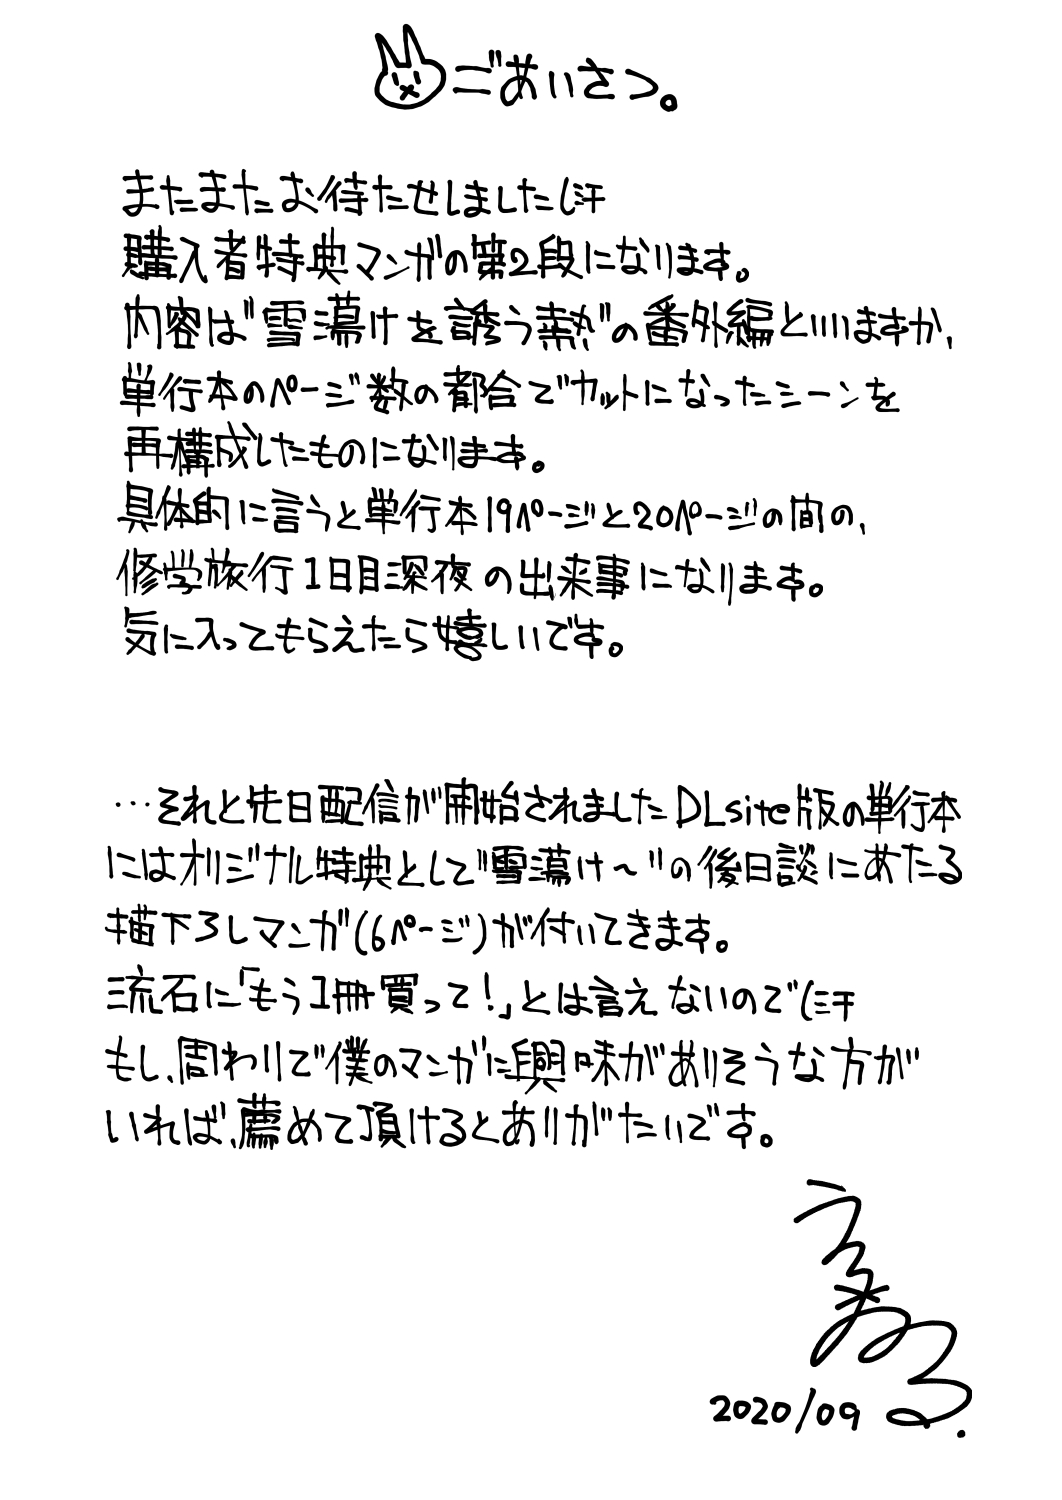 ごあいさつ。
またまたお待たせしました(汗
購入者特典マンガの第2段になります。
内容は"雪蕩けを誘う熱"の番外編といいますか、
単行本のページ数の都合でカットになったシーンを
再構成したものになります。
具体的に言うと単行本19ページと20ページの間の、
修学旅行1日目深夜の出来事になります。
気に入ってもらえたら嬉しいです。
…それと先日配信が開始されましたDLsite版の単行本
にはオリジナル特典として"雪蕩け~"の後日談にあたる
描下ろしマンガ(6ページ)が付いてきます。
流石に「もう1冊買って!」とは言えないので(汗
もし、周わりで僕のマンガに興味がありそうな方が
いれば、薦めて頂けるとありがたいです。
2020/09